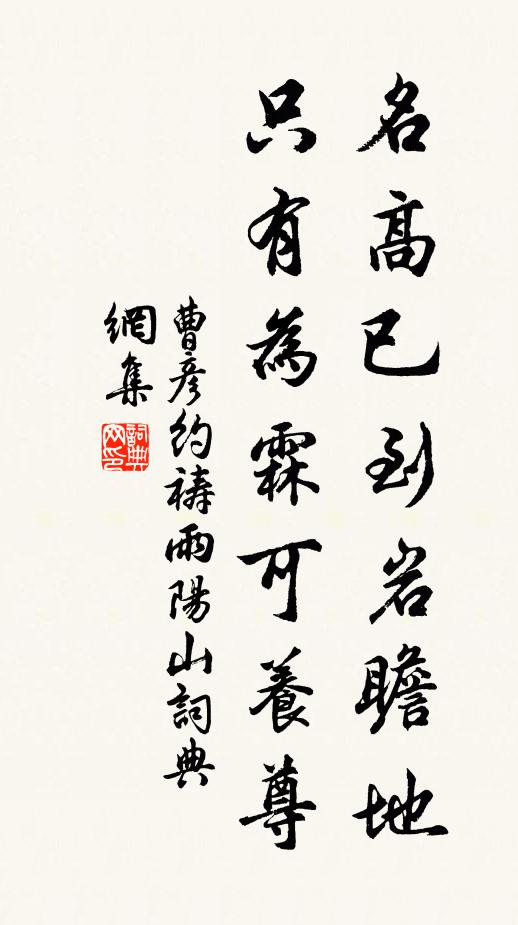 名高已到岩瞻地
只有為霖可養尊
曹彥約禱雨陽山詞典
網集
詞典
网印